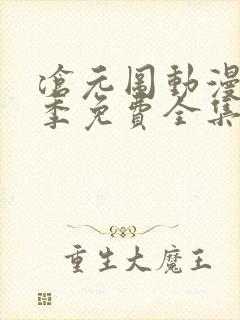 滄元圖動漫
季免費全集
重生大魔王